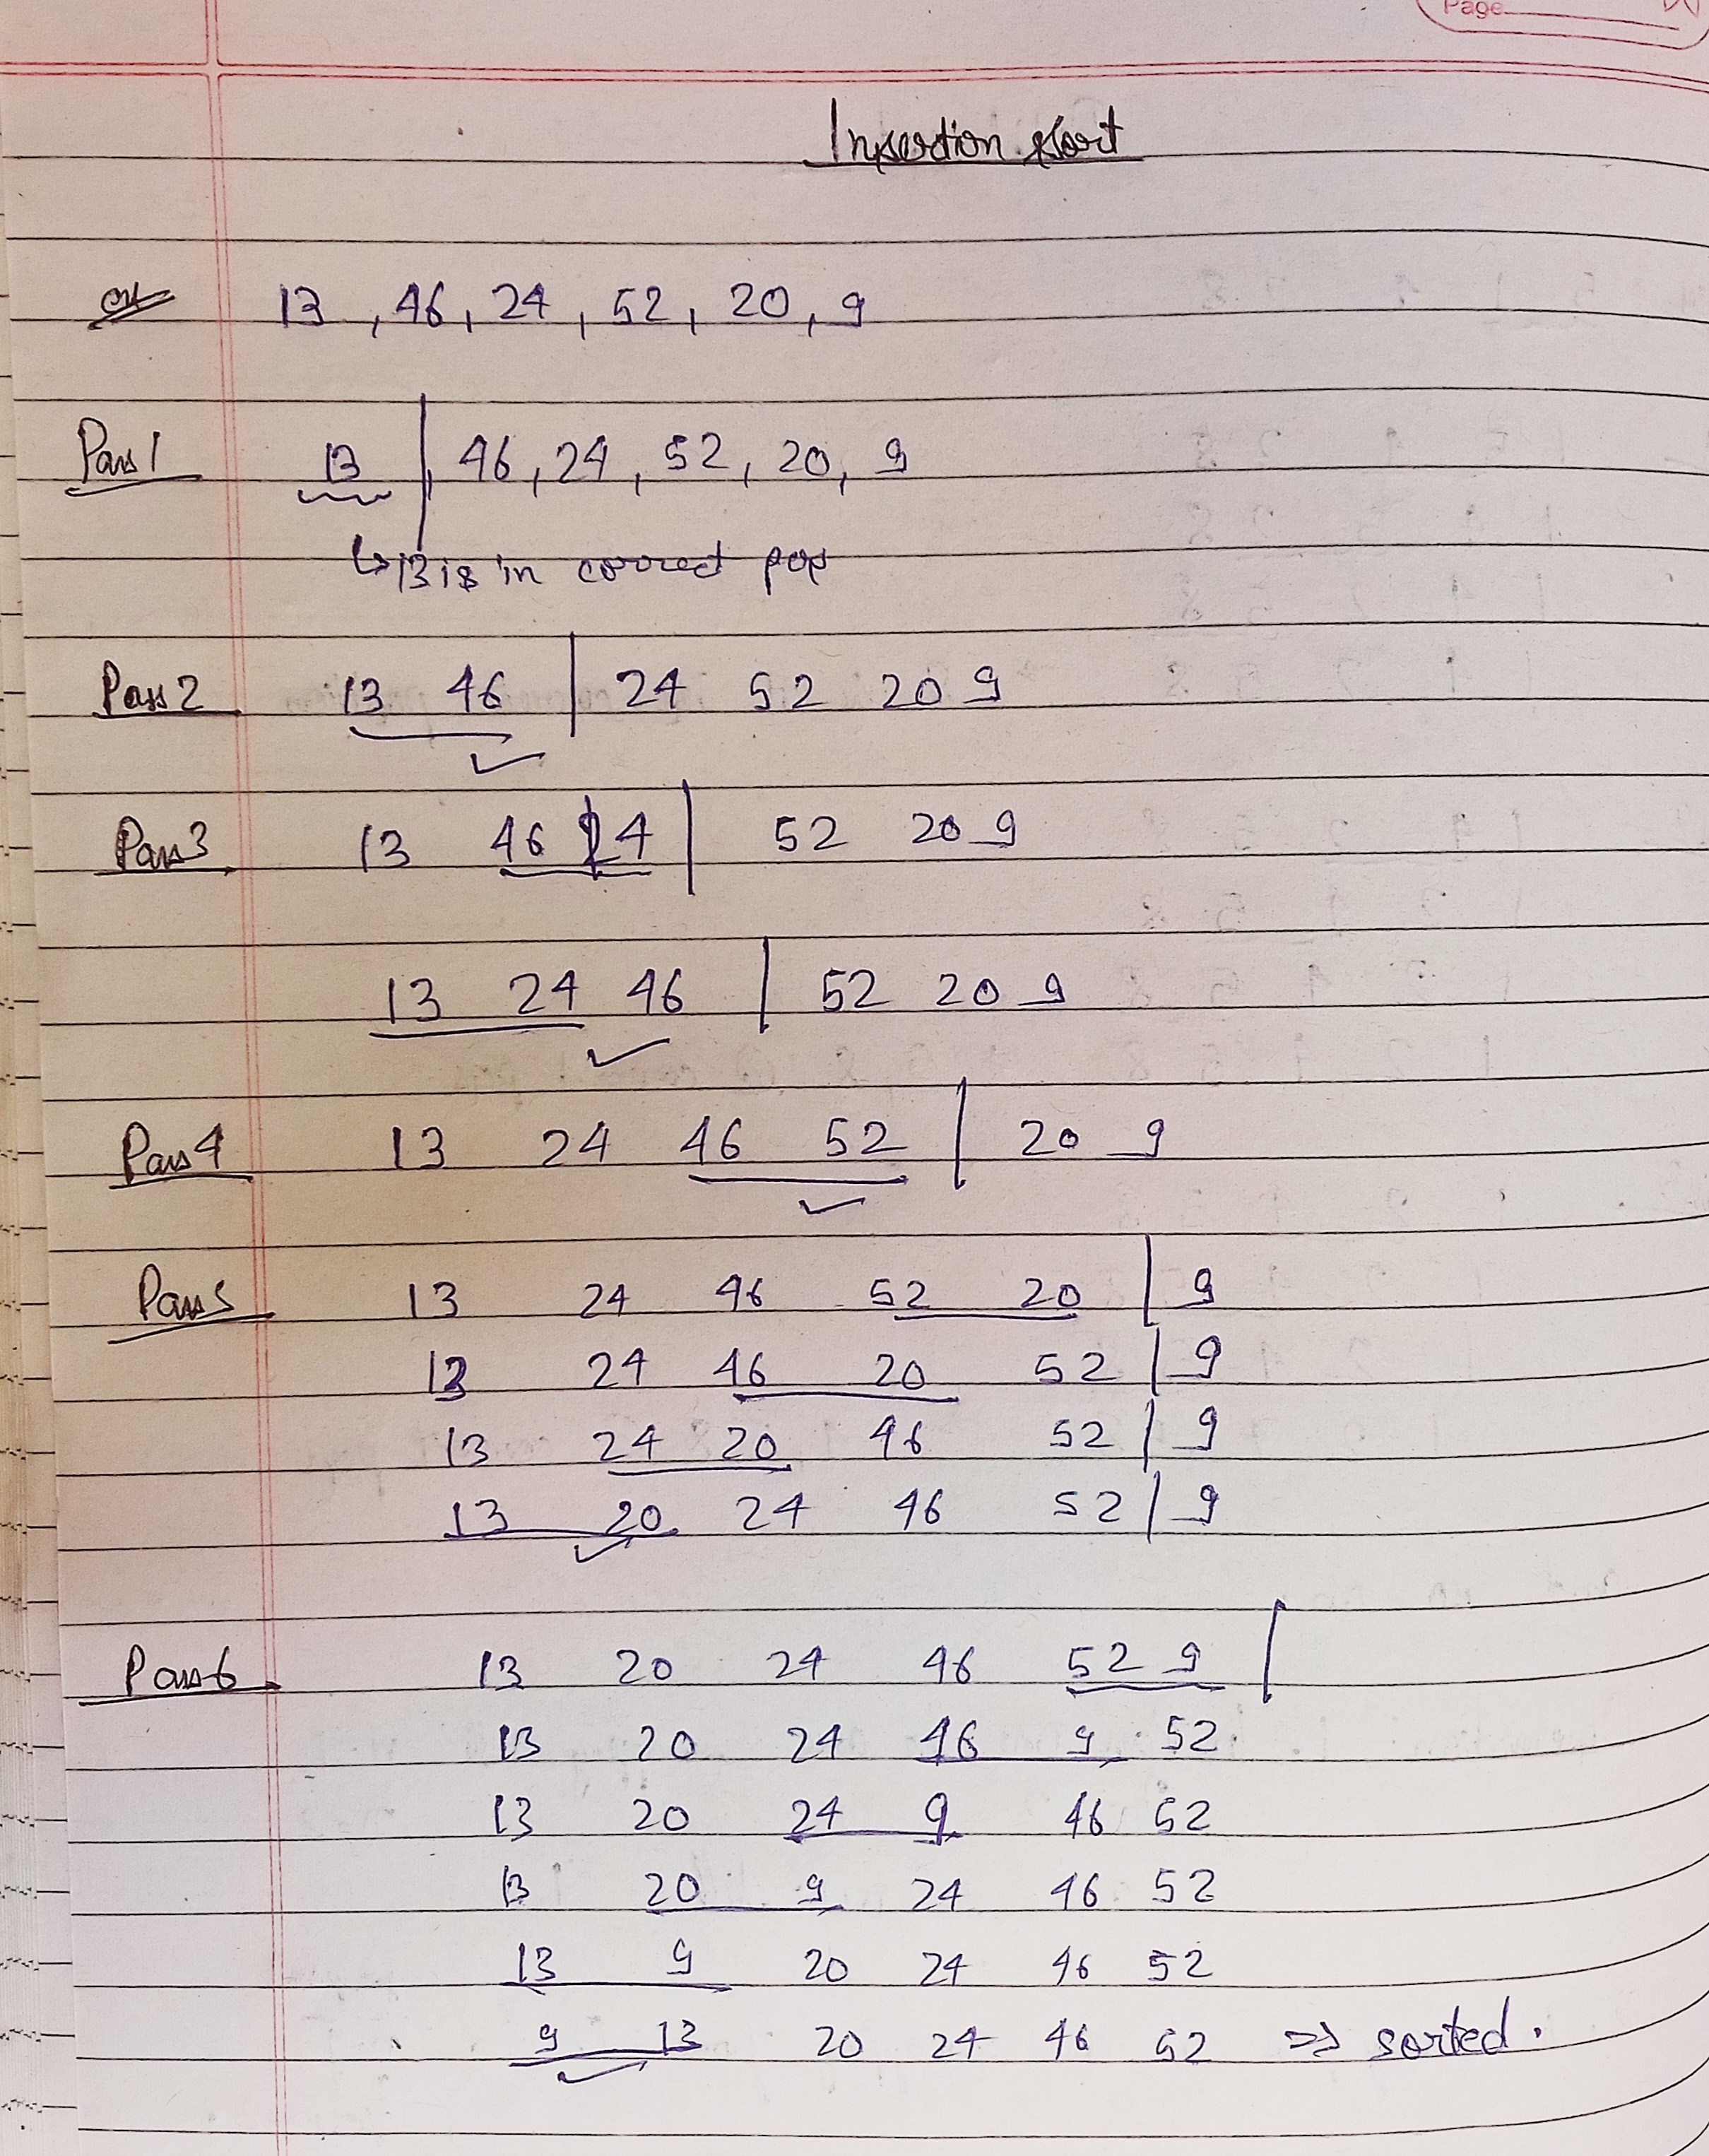 Page
Insertion sort
ex 13, 46, 24, 52, 20, 9
Pass 1 13 | , 46, 24, 52, 20, 9
↳ 13 is in correct pos
Pass 2 13 46 | 24 52 20 9
Pass 3 13 46 24 | 52 20 9
13 24 46 | 52 20 9
Pass 4 13 24 46 52 | 20 9
Pass 5 13 24 46 52 20 | 9
13 24 46 20 52 | 9
13 24 20 46 52 | 9
13 20 24 46 52 | 9
Pass 6 13 20 24 46 52 9 |
13 20 24 46 9 52
13 20 24 9 46 52
13 20 9 24 46 52
13 9 20 24 46 52
9 13 20 24 46 52 => sorted.